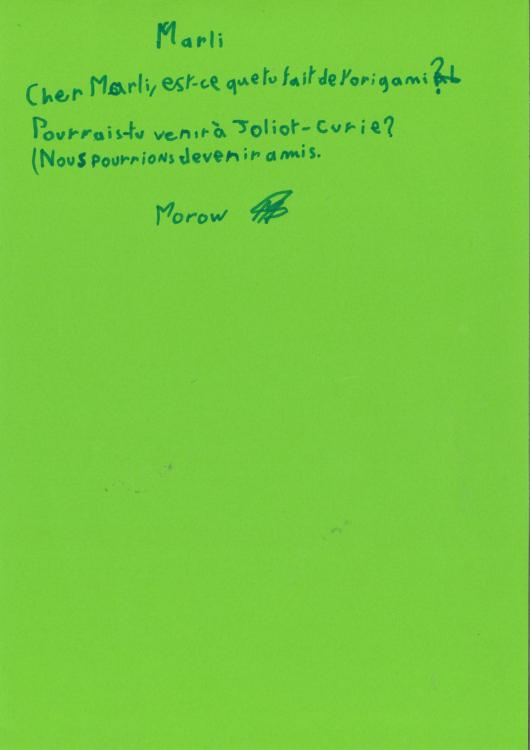 Marli
Cher Marli, est-ce que tu fait de l'origami ?
Pourrais-tu venir à Joliot-Curie ?
(Nous pourrions devenir amis.
Morow